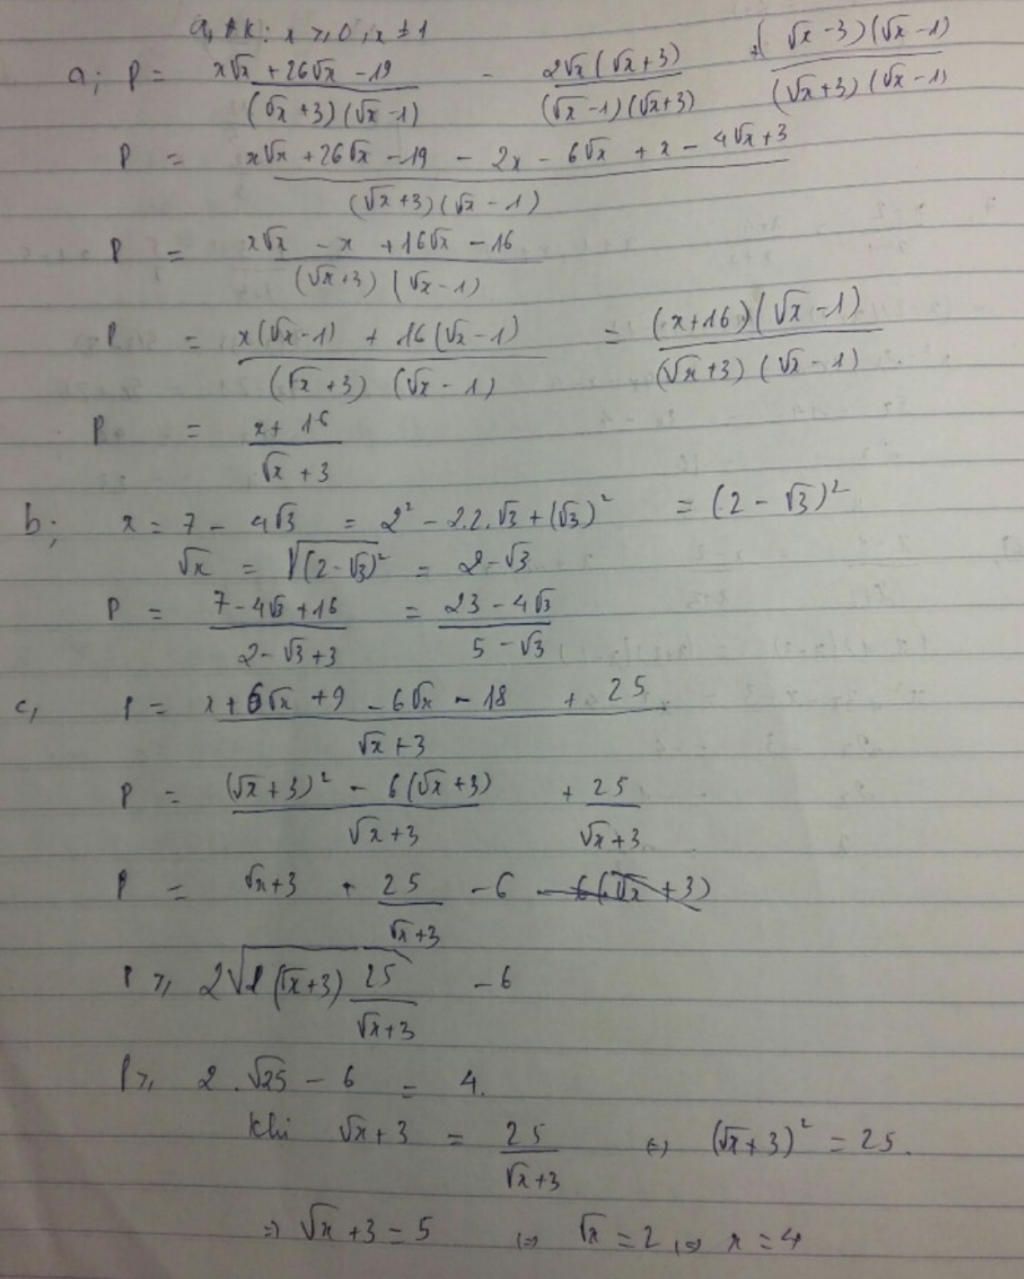 a, ĐK: x ≥ 0, x ≠ 1
a; P = (x√x + 26√x - 19)/((√x + 3)(√x - 1)) - (2√x(√x + 3))/((√x - 1)(√x + 3)) + ((√x - 3)(√x - 1))/((√x + 3)(√x - 1))
P = (x√x + 26√x - 19 - 2x - 6√x + x - 4√x + 3)/((√x + 3)(√x - 1))
P = (x√x - x + 16√x - 16)/((√x + 3)(√x - 1))
P = (x(√x - 1) + 16(√x - 1))/((√x + 3)(√x - 1)) = ((x + 16)(√x - 1))/((√x + 3)(√x - 1))
P = (x + 16)/(√x + 3)
b; x = 7 - 4√3 = 2² - 2.2.√3 + (√3)² = (2 - √3)²
√x = √(2 - √3)² = 2 - √3
P = (7 - 4√3 + 16)/(2 - √3 + 3) = (23 - 4√3)/(5 - √3)
c, P = (x + 6√x + 9 - 6√x - 18 + 25)/(√x + 3)
P = ((√x + 3)² - 6(√x + 3))/(√x + 3) + 25/(√x + 3)
P = √x + 3 + 25/(√x + 3) - 6
P ≥ 2√((√x + 3) 25/(√x + 3)) - 6
P ≥ 2.√25 - 6 = 4.
khi √x + 3 = 25/(√x + 3) ⇔ (√x + 3)² = 25.
⇒ √x + 3 = 5 ⇔ √x = 2 ⇔ x = 4